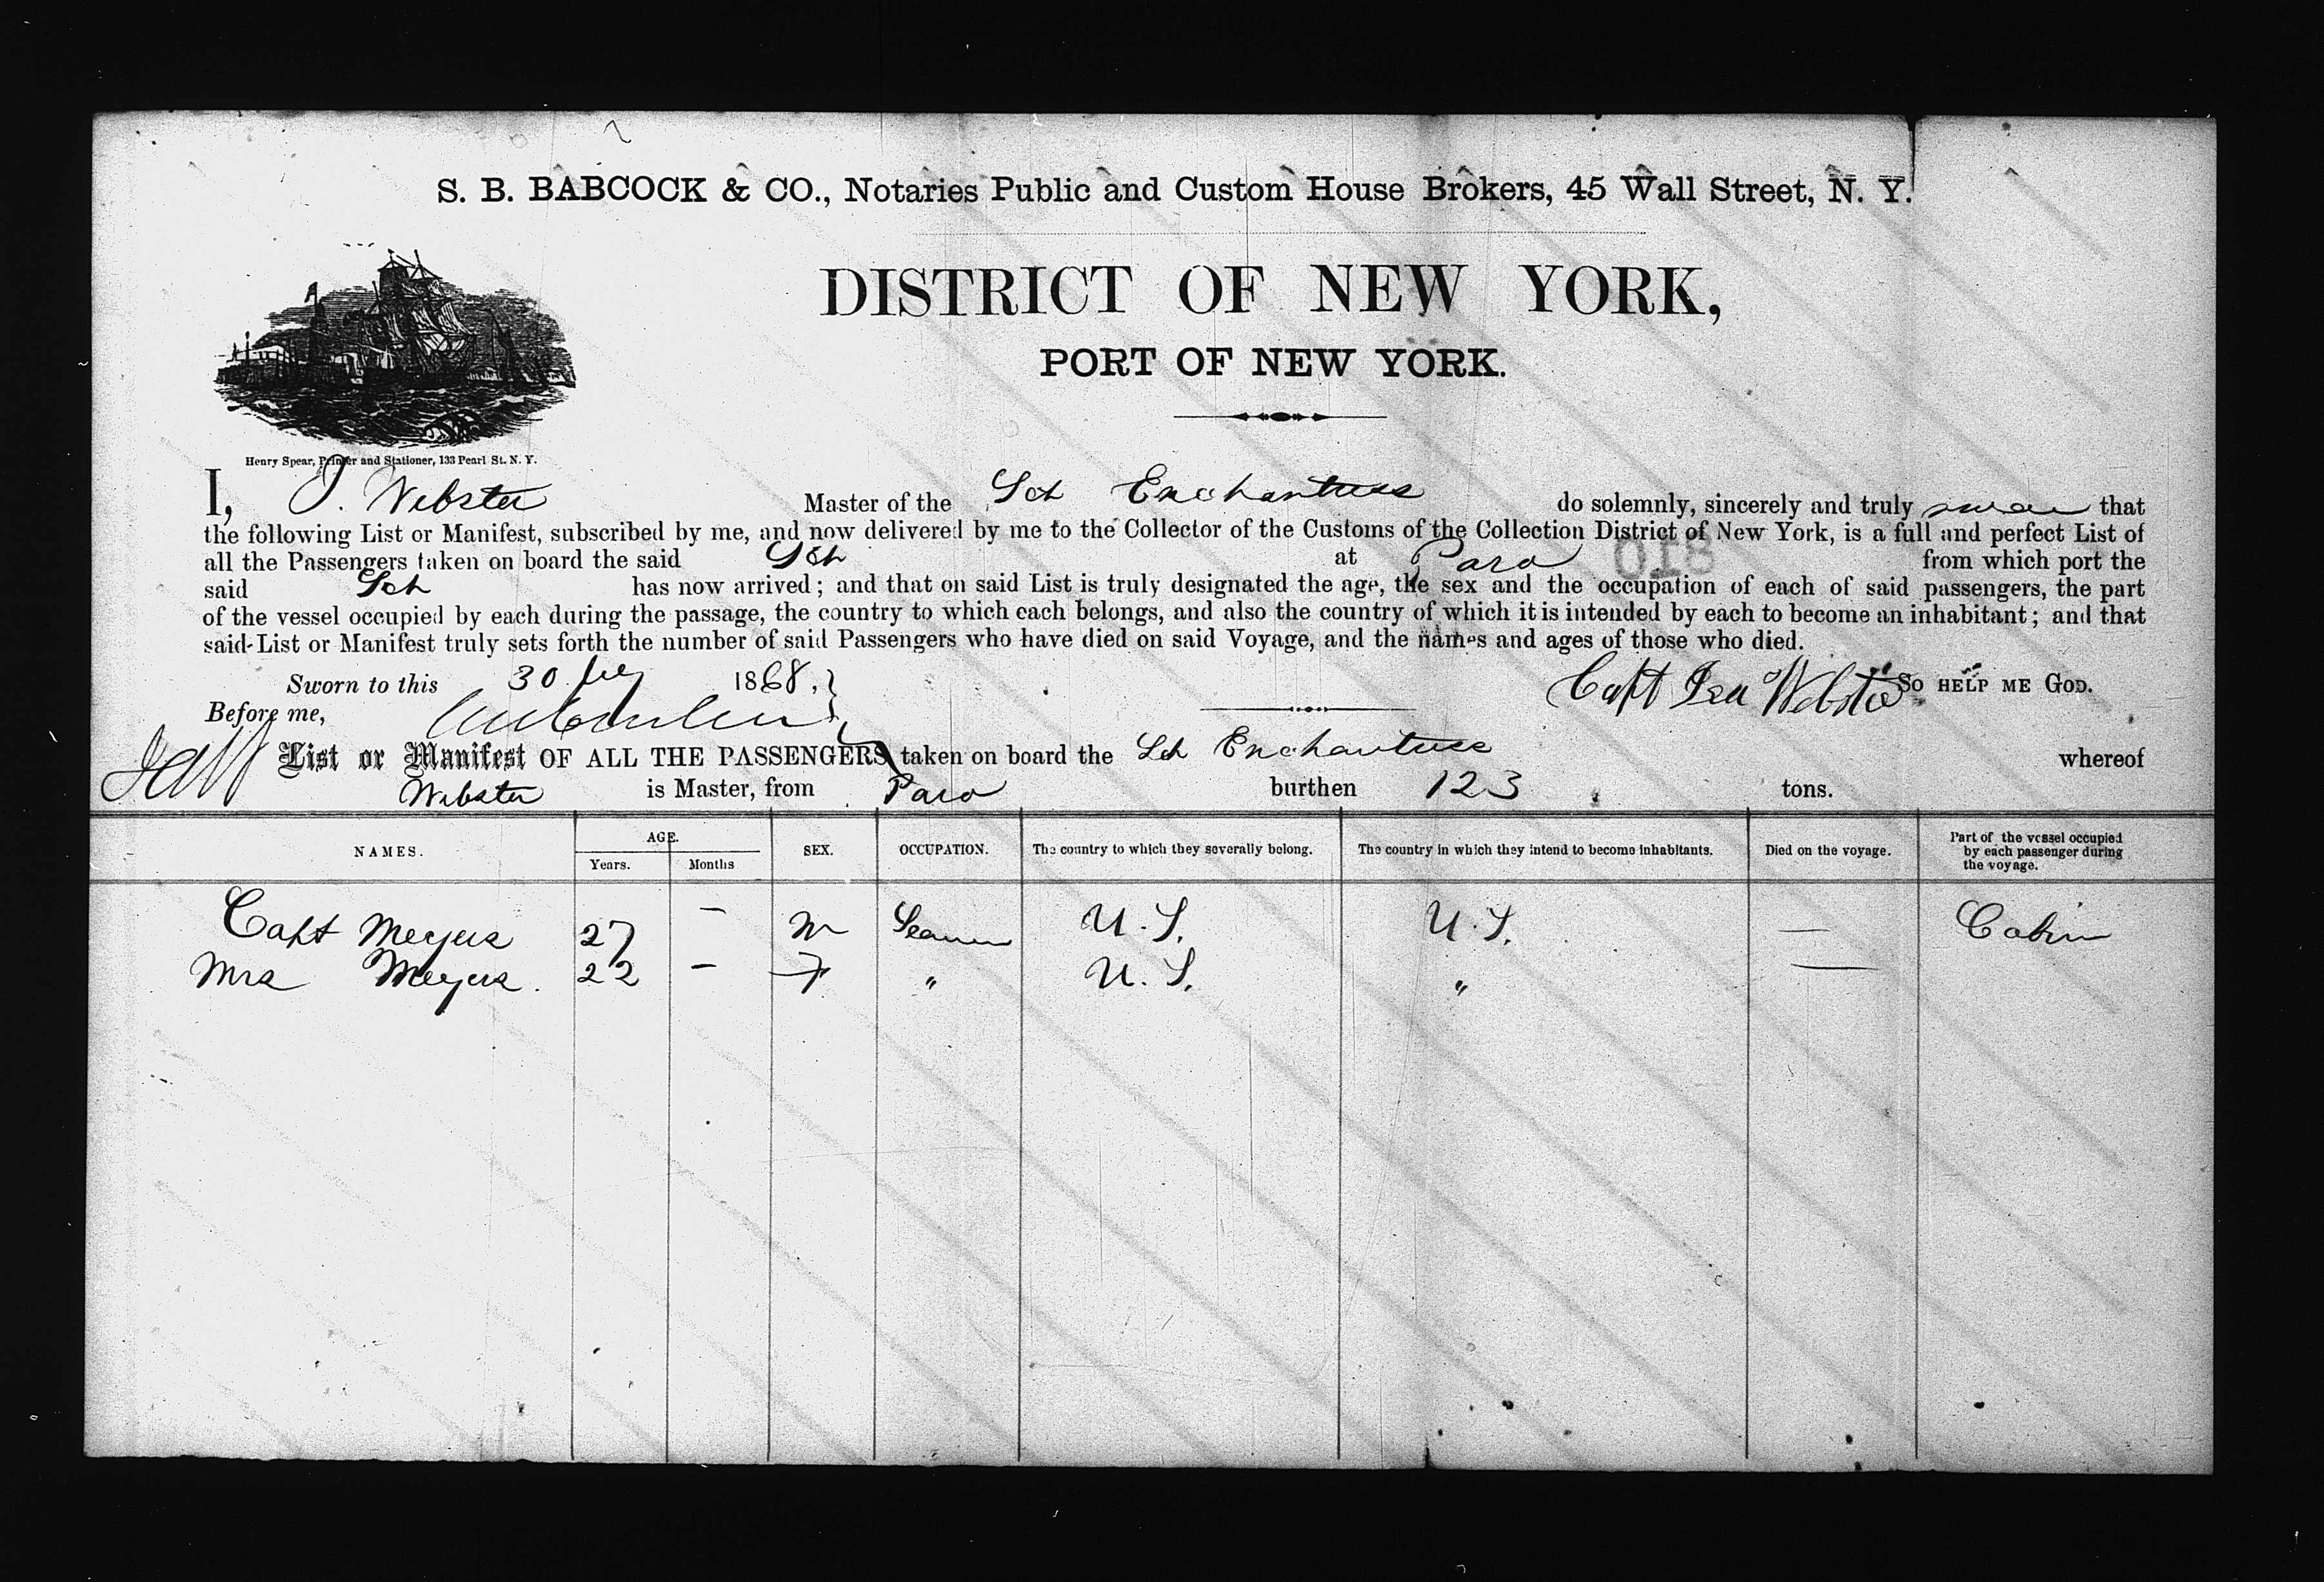 S. B. BABCOCK & CO., Notaries Public and Custom House Brokers, 45 Wall Street, N. Y.
DISTRICT OF NEW YORK,
PORT OF NEW YORK.
Henry Spear, Printer and Stationer, 133 Pearl St. N. Y.
I, I. Webster Master of the Sch Enchantress do solemnly, sincerely and truly swear that
the following List or Manifest, subscribed by me, and now delivered by me to the Collector of the Customs of the Collection District of New York, is a full and perfect List of
all the Passengers taken on board the said Sch at Para from which port the
018
said Sch has now arrived; and that on said List is truly designated the age, the sex and the occupation of each of said passengers, the part
of the vessel occupied by each during the passage, the country to which each belongs, and also the country of which it is intended by each to become an inhabitant; and that
said List or Manifest truly sets forth the number of said Passengers who have died on said Voyage, and the names and ages of those who died.
Sworn to this 30 1868, Capt Isa Webster SO HELP ME GOD.
Before me,
List or Manifest OF ALL THE PASSENGERS taken on board the Sch Enchantress whereof
Webster is Master, from Para burthen 123 tons.
NAMES. AGE. Years. Months SEX. OCCUPATION. The country to which they severally belong. The country in which they intend to become inhabitants. Died on the voyage. Part of the vessel occupied by each passenger during the voyage.
Capt Meyers 27 — M Seaman U.S. U.S. — Cabin
Mrs Meyers. 22 — F " U.S. " —